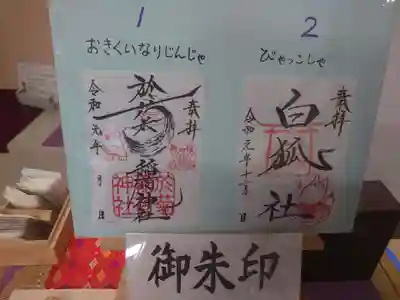 1
おきくいなりじんじゃ
奉拝
於菊稲荷神社
令和元年 月 日
於菊
神社
2
びゃっこしゃ
奉拝
白狐社
令和元年十一月 日
御朱印